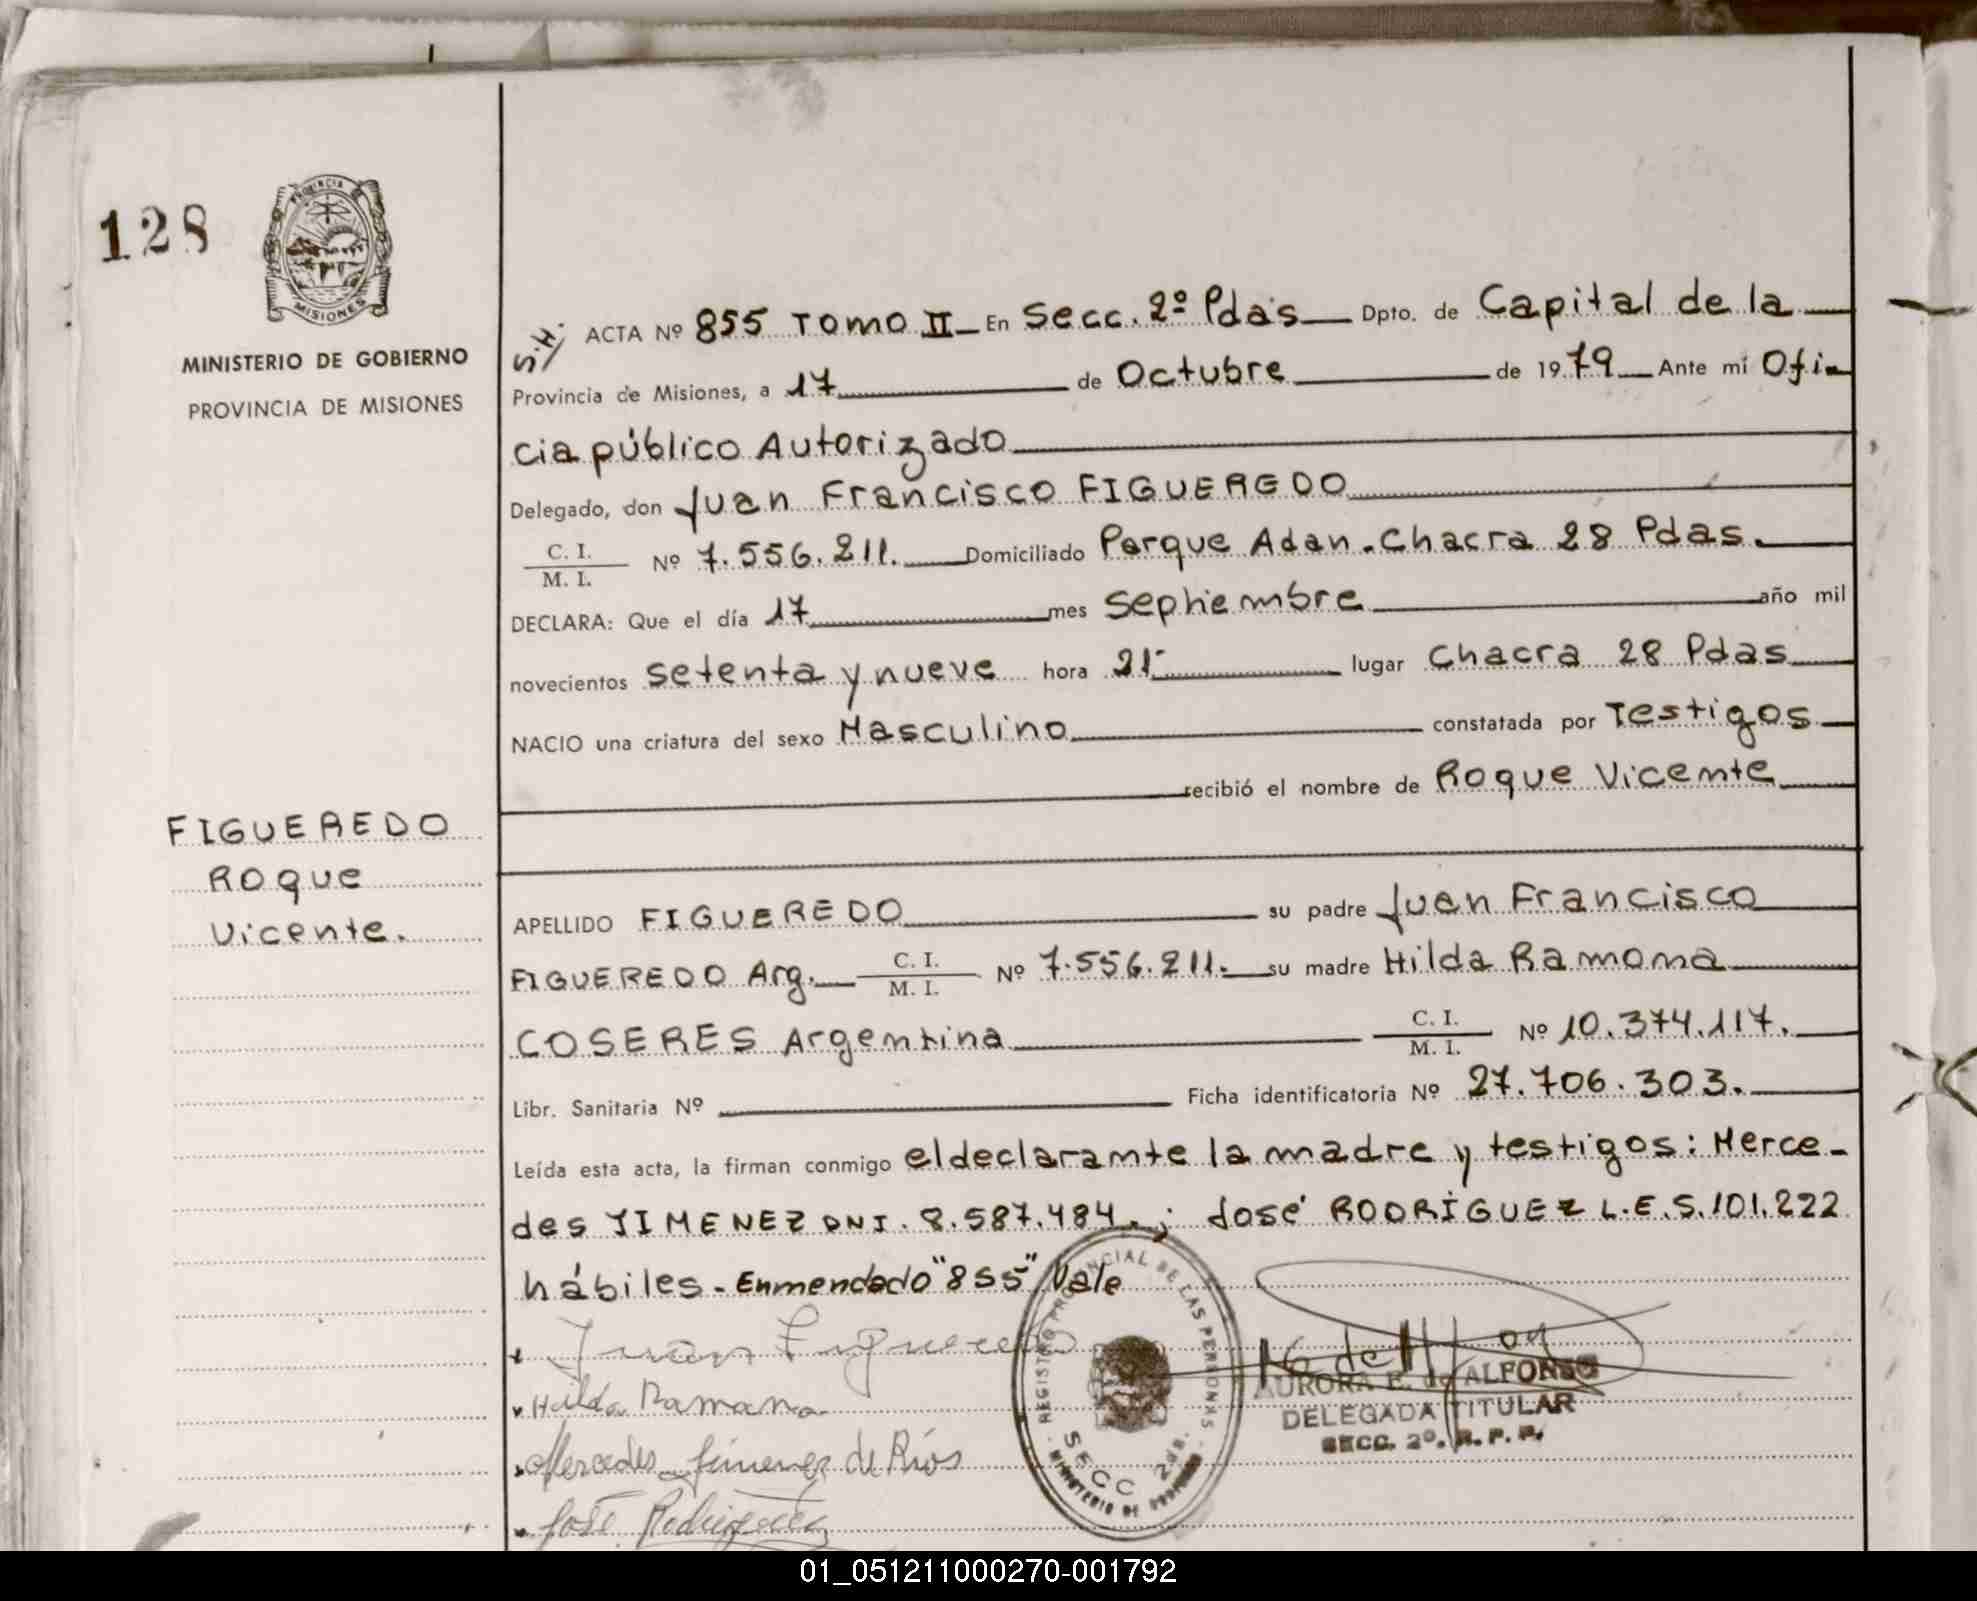 128
PROVINCIA DE
MISIONES
MINISTERIO DE GOBIERNO
PROVINCIA DE MISIONES
FIGUEREDO
Roque
Vicente.
S.H.
ACTA Nº 855 Tomo II En Secc. 2º Pdas Dpto. de Capital de la
Provincia de Misiones, a 17 de Octubre de 1979 Ante mí Ofi-
cia público Autorizado
Delegado, don Juan Francisco FIGUEREDO
C. I.
M. I. Nº 7.556.211. Domiciliado Parque Adan.Chacra 28 Pdas.
DECLARA: Que el día 17 mes Septiembre año mil
novecientos setenta y nueve hora 21 lugar Chacra 28 Pdas
NACIO una criatura del sexo Masculino constatada por Testigos
recibió el nombre de Roque Vicente
APELLIDO FIGUEREDO su padre Juan Francisco
FIGUEREDO Arg. C. I. M. I. Nº 7.556.211. su madre Hilda Ramona
COSERES Argentina C. I. M. I. Nº 10.374.117.
Libr. Sanitaria Nº Ficha identificatoria Nº 27.706.303.
Leída esta acta, la firman conmigo el declarante la madre y testigos: Merce-
des JIMENEZ DNI. 8.587.484.; José RODRÍGUEZ L.E.5.101.222
hábiles - Enmendado "855" Vale
Juan Figueredo
Hilda Ramona
Mercedes Jimenez de Ríos
José Rodriguez
REGISTRO PROVINCIAL DE LAS PERSONAS
SECC 2da.
MINISTERIO DE GOBIERNO
AURORA E. de ALFONSO
DELEGADA TITULAR
SECC. 2º. R. P. P.
01_051211000270-001792